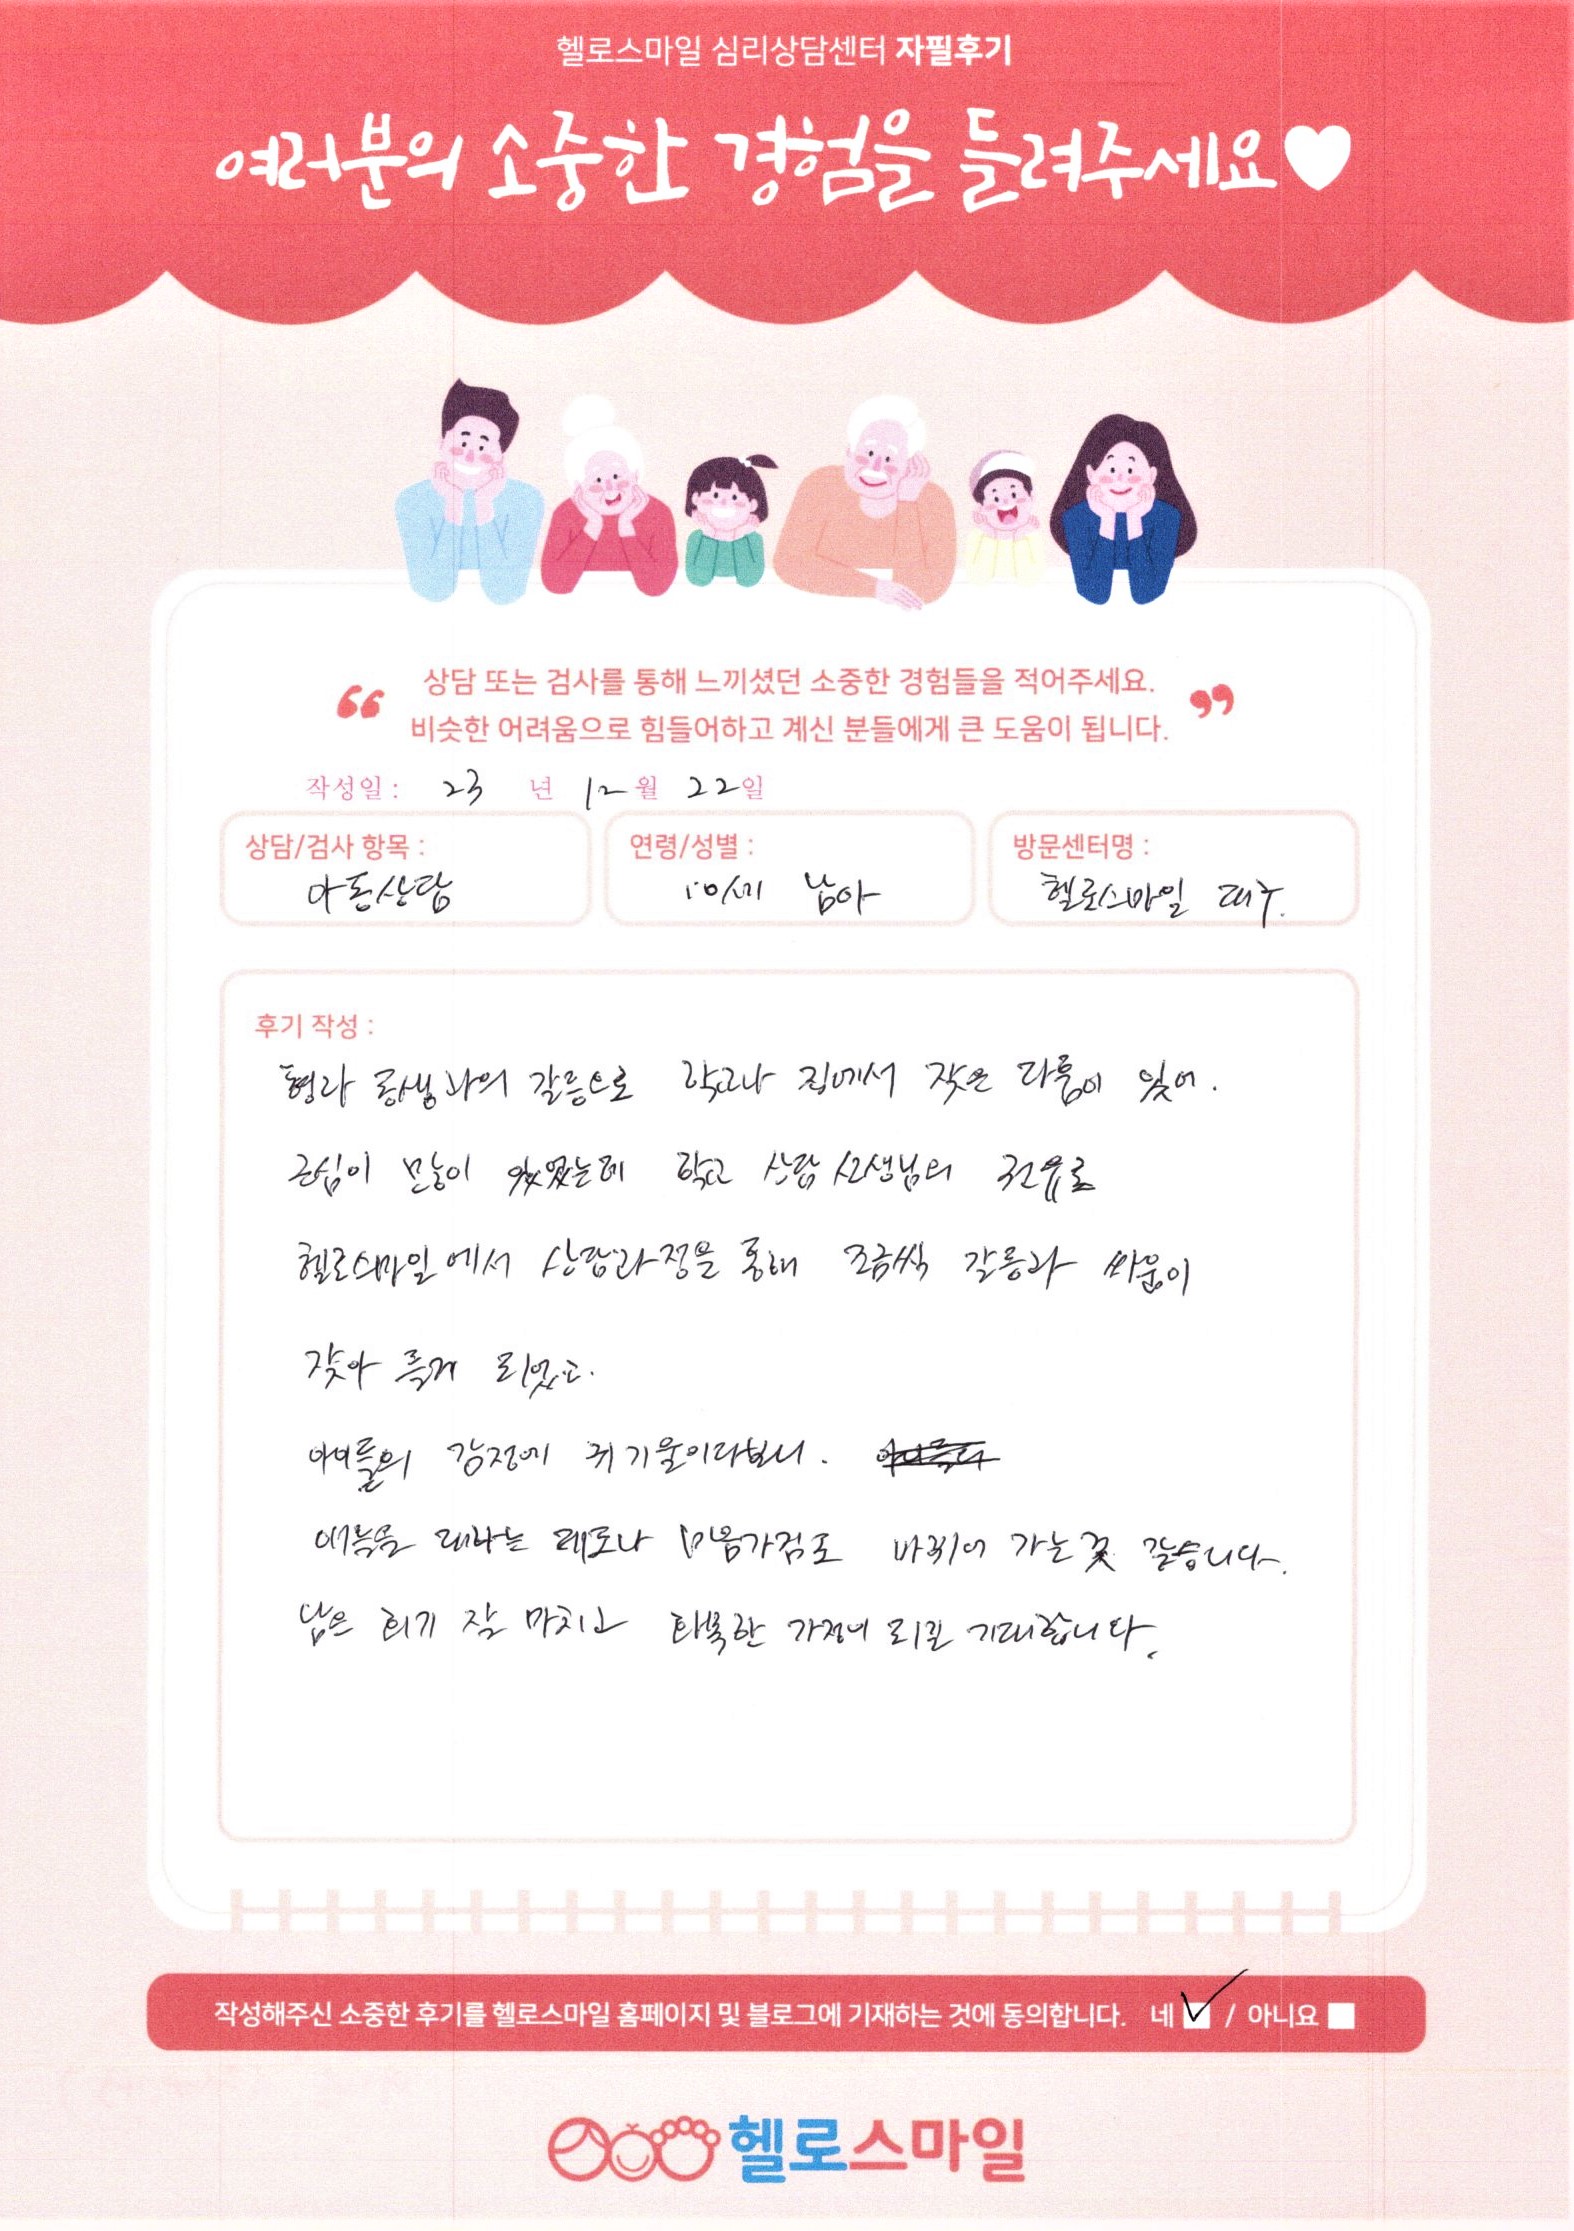 헬로스마일 심리상담센터 자필후기
여러분의 소중한 경험을 들려주세요
상담 또는 검사를 통해 느끼셨던 소중한 경험들을 적어주세요.
비슷한 어려움으로 힘들어하고 계신 분들에게 큰 도움이 됩니다.
작성일 : 23 년 12 월 22 일
상담/검사 항목 : 연령/성별 : 방문센터명 :
아동상담 10세 남아 헬로스마일 대구.
후기 작성 :
형과 동생과의 갈등으로 학교나 집에서 잦은 다툼이 있어.
근심이 많이 있었는데 학교 상담 선생님의 권유로
헬로스마일에서 상담과정을 통해 조금씩 갈등과 싸움이
잦아 들게 되었고.
아이들의 감정에 귀 기울이다보니.
애들을 대하는 태도나 마음가짐도 바뀌어 가는 것 같습니다.
남은 회기 잘 마치고 화목한 가정이 되길 기대합니다.
작성해주신 소중한 후기를 헬로스마일 홈페이지 및 블로그에 기재하는 것에 동의합니다. 네 / 아니요
헬로스마일